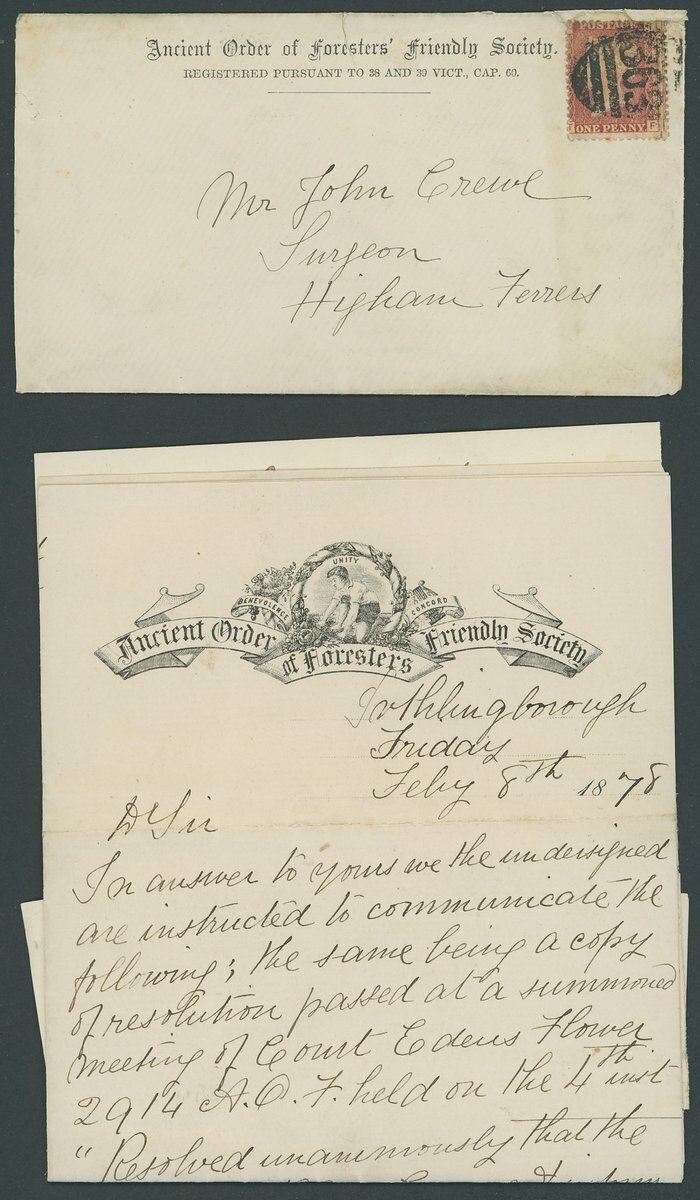 Ancient Order of Foresters' Friendly Society.
REGISTERED PURSUANT TO 38 AND 39 VICT., CAP. 60.
363
ONE PENNY
Mr John Crewe
Surgeon
Higham Ferrers
UNITY
BENEVOLENCE
CONCORD
Ancient Order of Foresters Friendly Society.
Irthlingborough
Friday
Feby 8th 1878
Dr Sir
In answer to yours we the undersigned
are instructed to communicate the
following; the same being a copy
of resolution passed at a summoned
meeting of Court Edens Flower
2914 A.O.F. held on the 4th inst
"Resolved unanimously that the